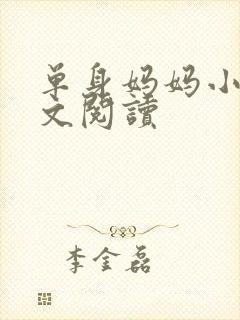 单身妈妈小
文閱讀
李金磊